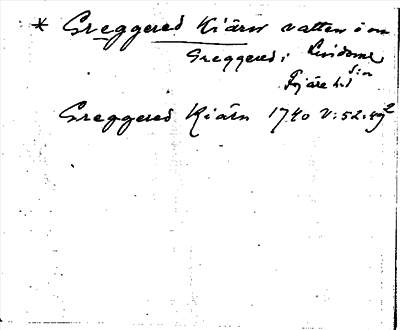 * Greggered Kiärn vatten i om
Greggered i Lindome
sn
Fjäre hd
Greggered Kiärn 1740 V: 52:49²